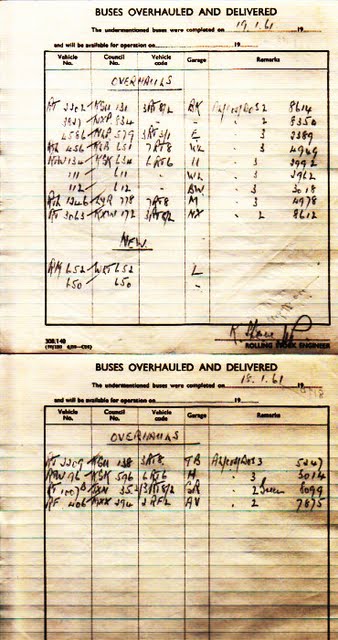 BUSES OVERHAULED AND DELIVERED
The undermentioned buses were completed on 19.1.61 19
and will be available for operation on 19
Vehicle No. Council No. Vehicle code Garage Remarks
OVERHAULS
RT 2202 KGU 131 3RT8/2 AK 2 8614
NXP 834 - - 2 8350
4586 NLP 579 3RT3/1 E 3 2389
RTL 456 KGK 7RT8 WL 3 4969
RTW 134 KGK 634 6RT6 H 3 2992
111 611 - WL 3 2962
112 612 - BW 3 3018
RTL 1346 LYR 778 7RT8 M 3 4978
RT 3063 KXW 172 3RT8/2 NX 2 8612
NEW
RM 652 WLT 652 L
650 650 -
ROLLING STOCK ENGINEER
BUSES OVERHAULED AND DELIVERED
The undermentioned buses were completed on 18.1.61 19
and will be available for operation on 19
Vehicle No. Council No. Vehicle code Garage Remarks
OVERHAULS
RT 2209 KGU 138 3RT8 TB 3 5247
RTW 96 KGK 596 6RT6 H 3 3014
RT 1007 352 3RT8/2 GR 2 Green 8099
RF 406 MXX 294 2RF2 AV 2 7875